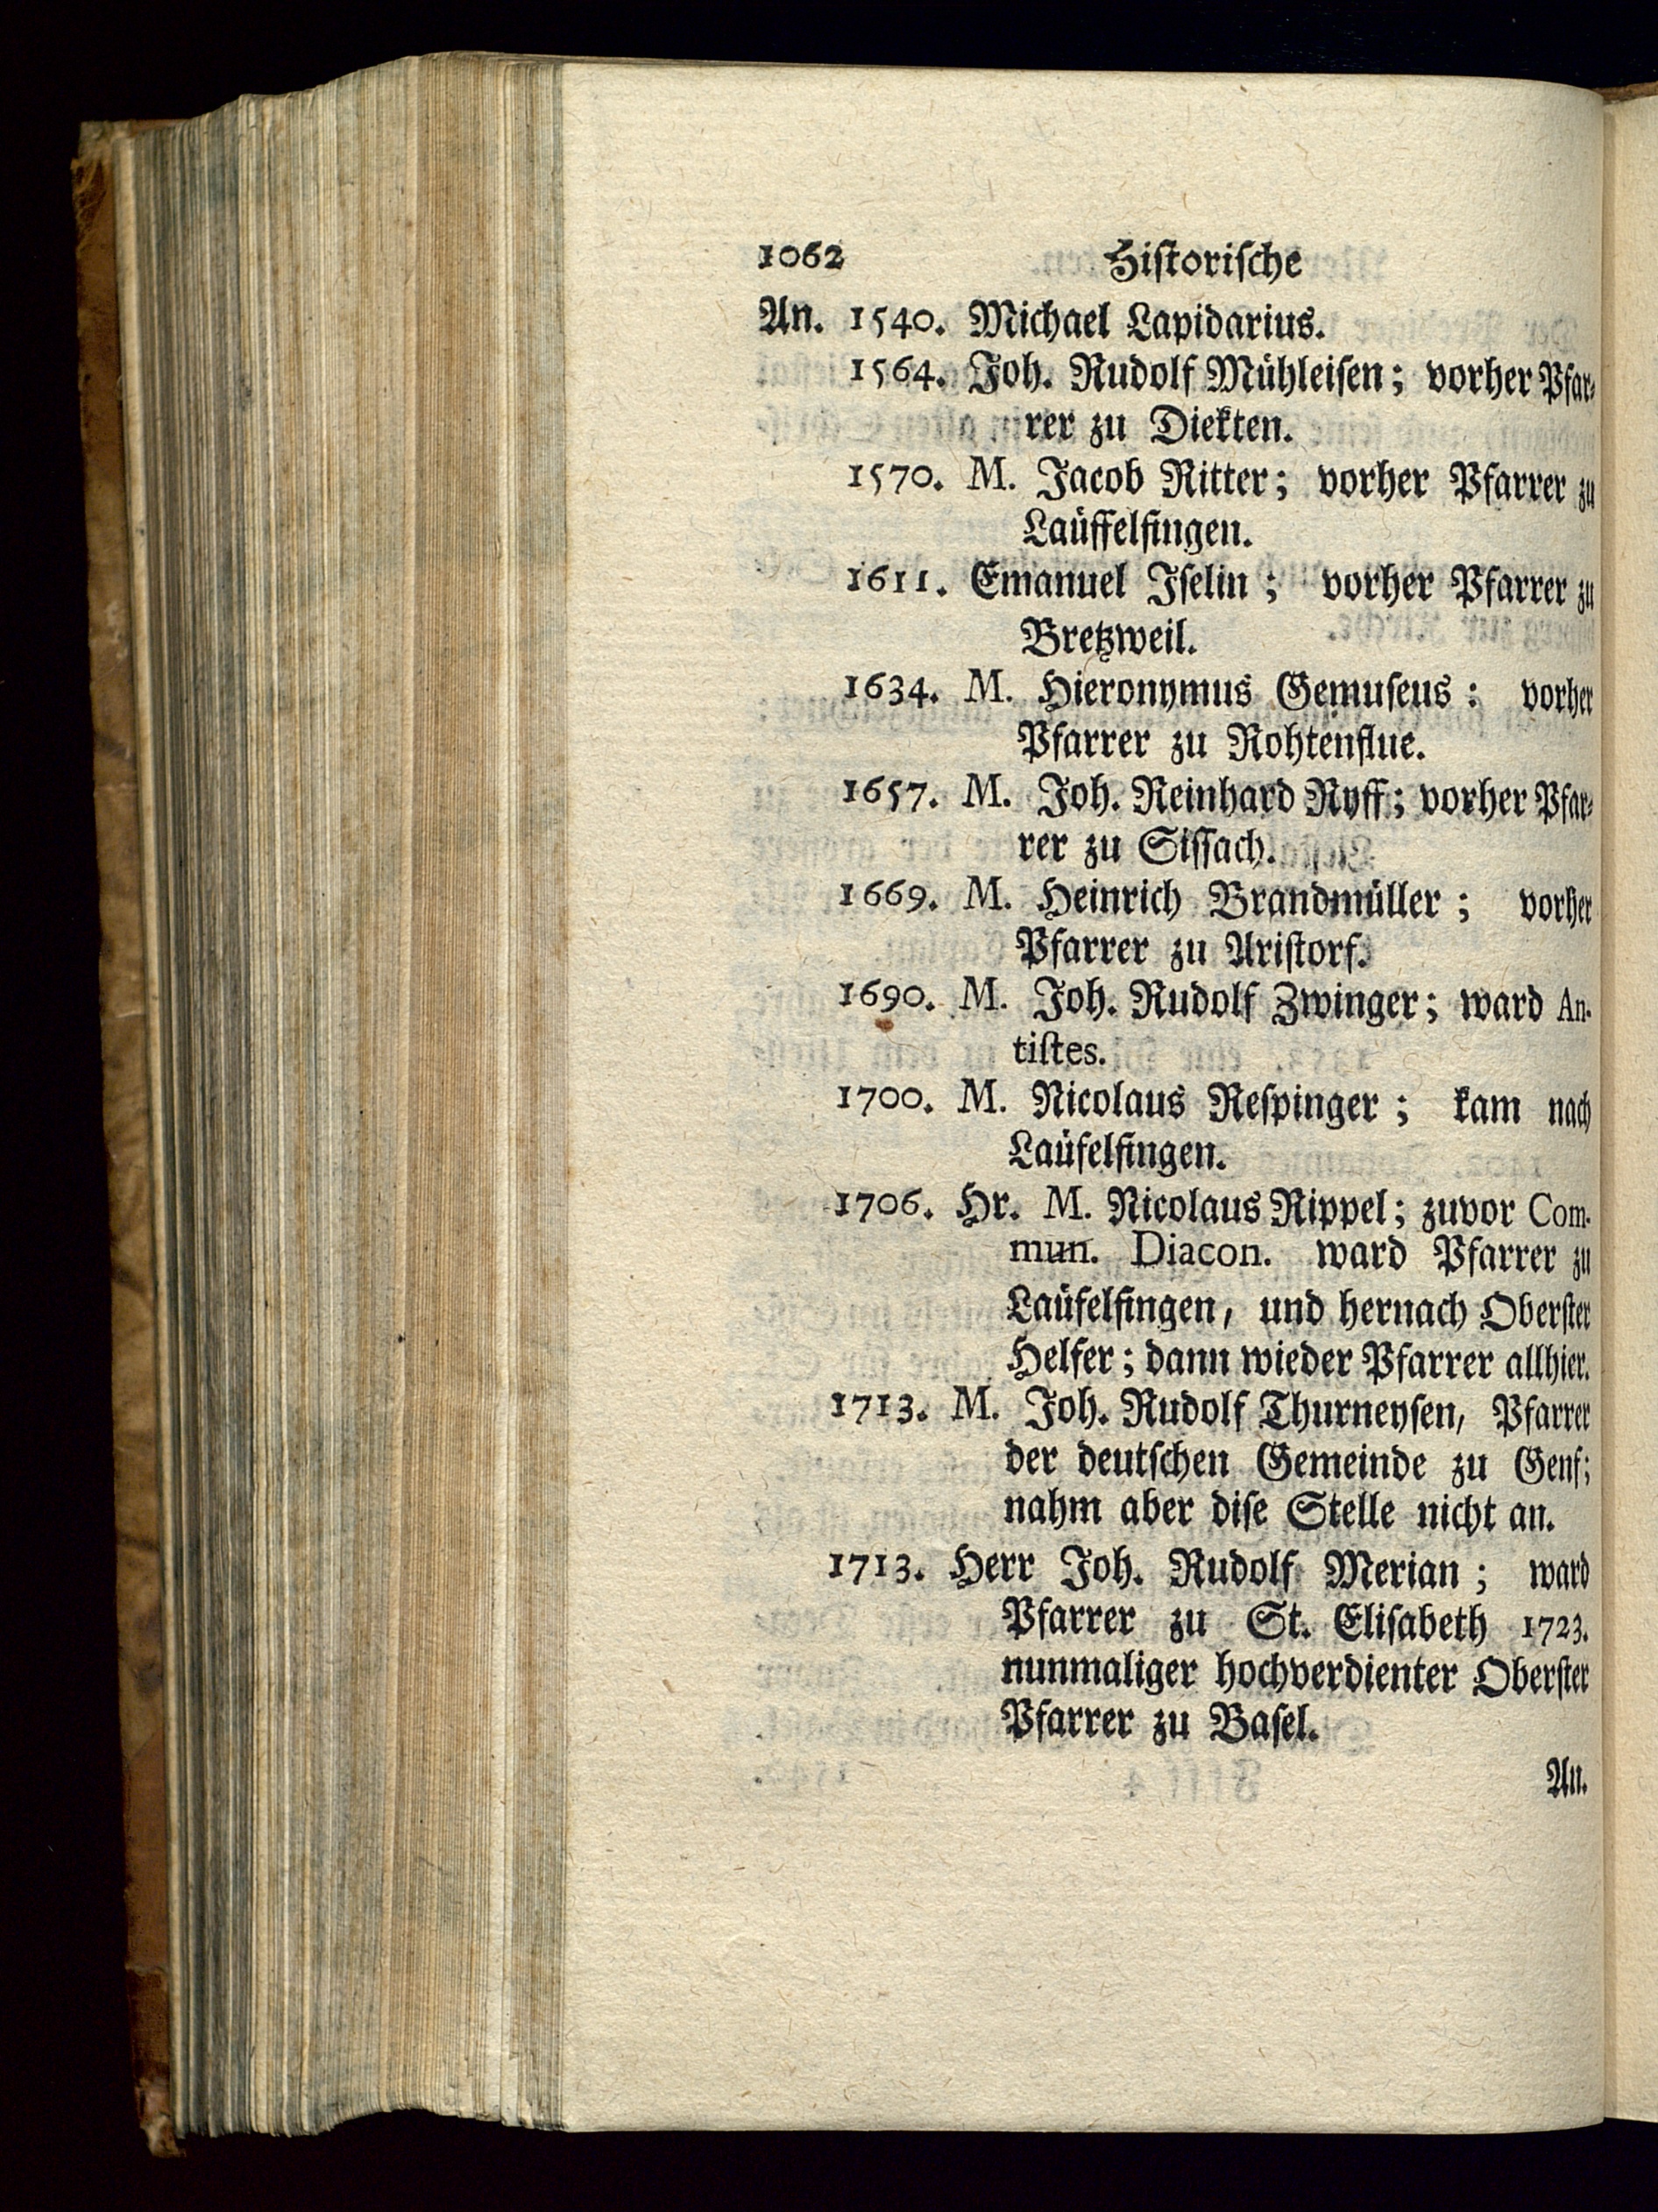 1062 Hiſtoriſche
An. 1540. Michael Lapidarius.
1564. Joh. Rudolf Mühleiſen; vorher Pfar-
rer zu Diekten.
1570. M. Jacob Ritter; vorher Pfarrer zu
Laüffelfingen.
1611. Emanuel Iſelin; vorher Pfarrer zu
Bretzweil.
1634. M. Hieronymus Gemuſeus: vorher
Pfarrer zu Rohtenflue.
1657. M. Joh. Reinhard Ryff; vorher Pfar-
rer zu Siſſach.
1669. M. Heinrich Brandmüller; vorher
Pfarrer zu Ariſtorf.
1690. M. Joh. Rudolf Zwinger; ward An-
tiſtes.
1700. M. Nicolaus Reſpinger; kam nach
Laüfelfingen.
1706. Hr. M. Nicolaus Rippel; zuvor Com-
mun. Diacon. ward Pfarrer zu
Laüfelfingen, und hernach Oberſter
Helfer; dann wieder Pfarrer allhier.
1713. M. Joh. Rudolf Thurneyſen, Pfarrer
der deutſchen Gemeinde zu Genf;
nahm aber diſe Stelle nicht an.
1713. Herr Joh. Rudolf Merian; ward
Pfarrer zu St. Eliſabeth 1723.
nunmaliger hochverdienter Oberſter
Pfarrer zu Baſel.
An.